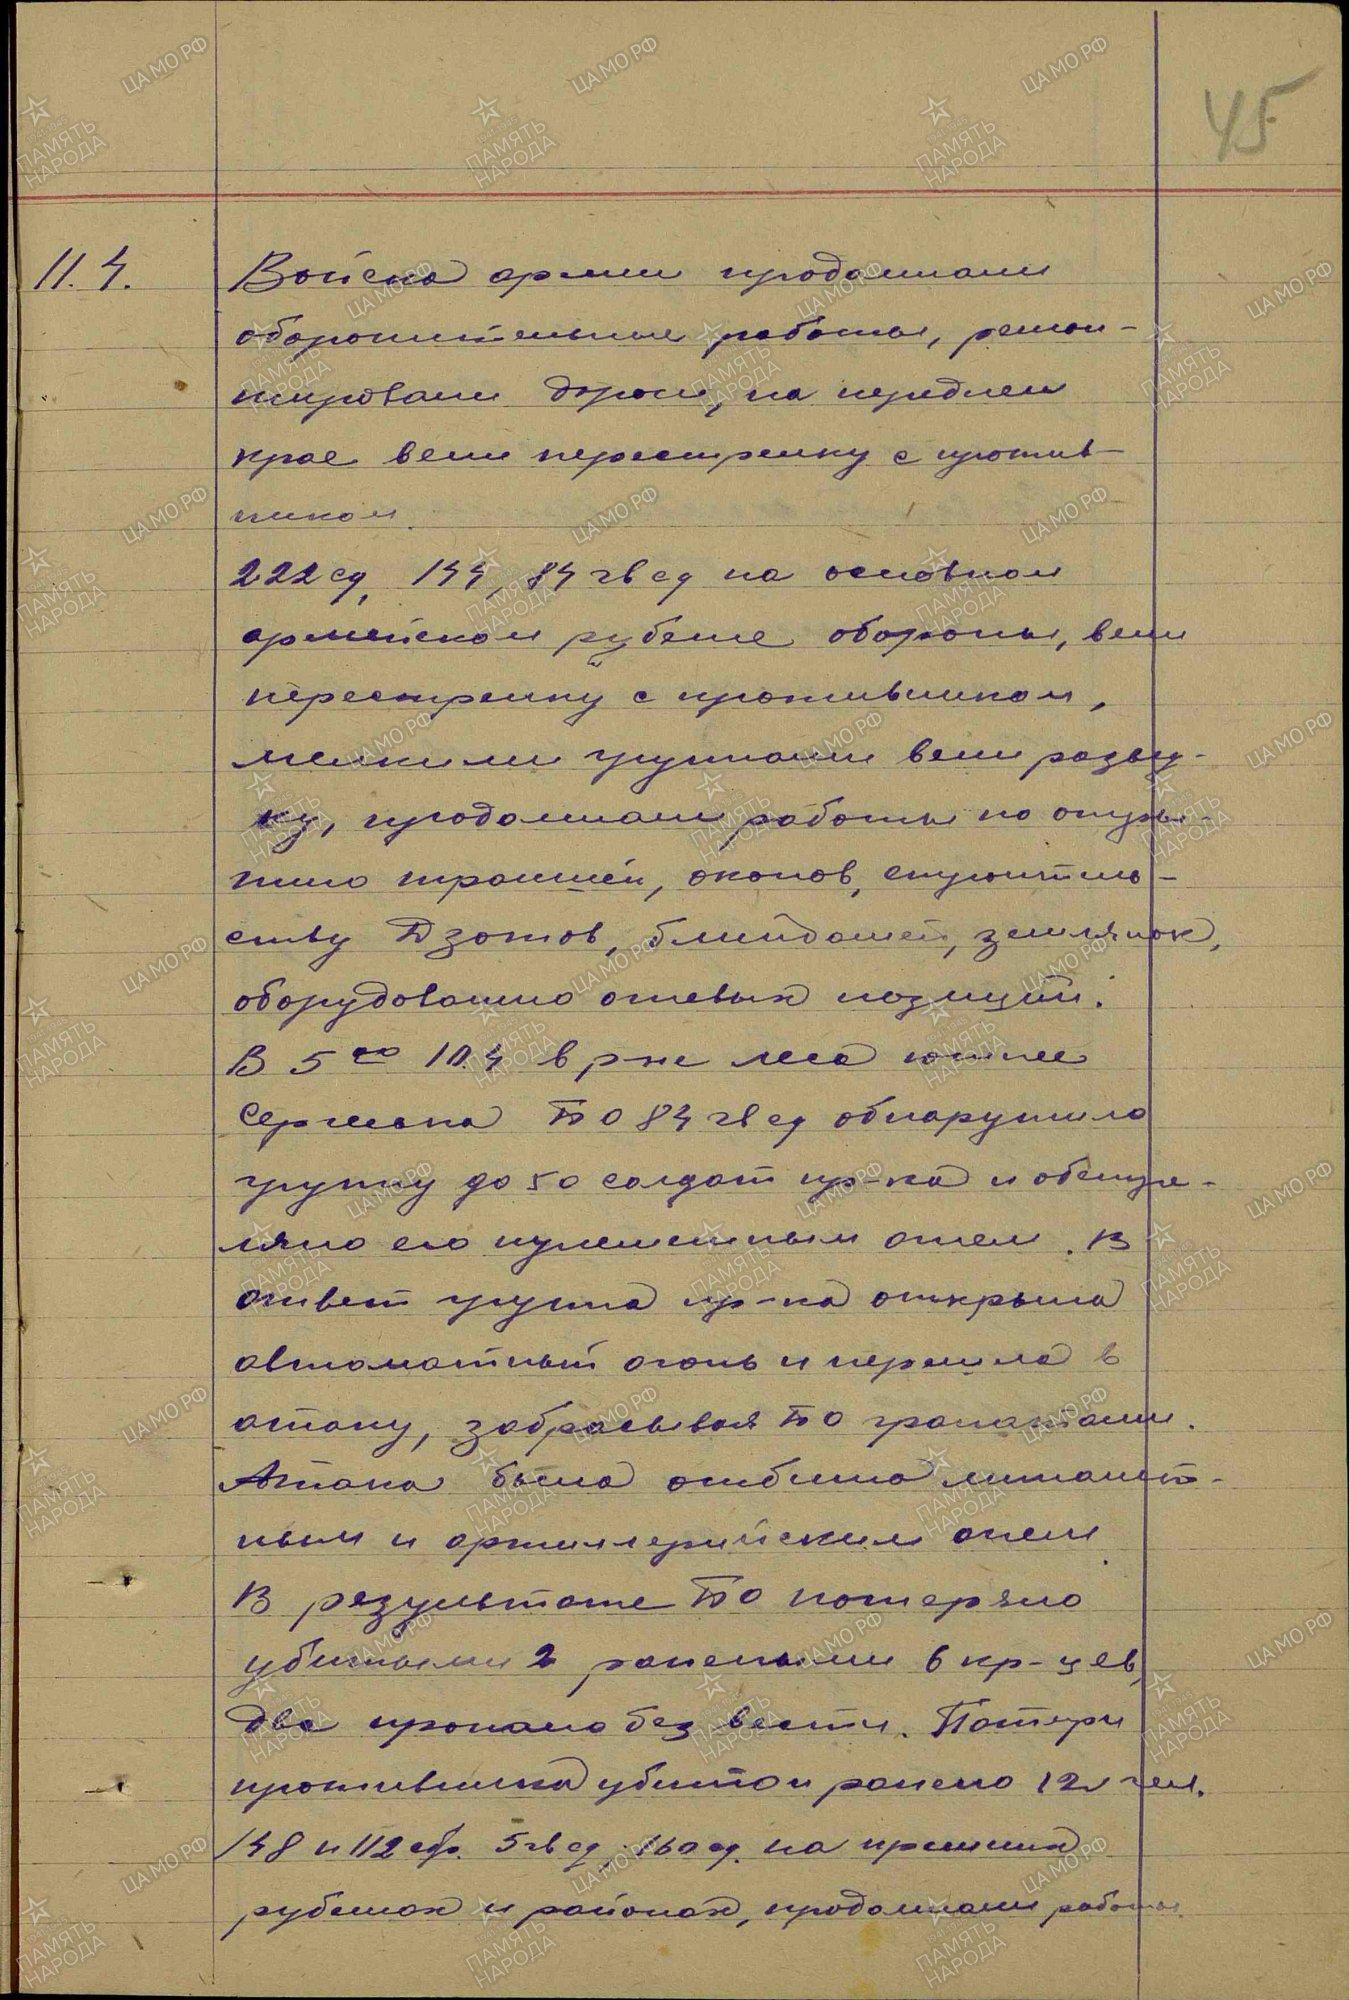 45
11.4.
Войска армии продолжали
оборонительные работы, ремон-
тировали дороги, на переднем
крае вели перестрелку с против-
ником.
222 сд, 144, 84 гв сд на основном
армейском рубеже обороны, вели
перестрелку с противником,
мелкими группами вели развед-
ку, продолжали работы по отры-
тию траншей, окопов, строитель-
ству Дзотов, блиндажей, землянок,
оборудованию огневых позиций.
В 5 00 10.4 в р-не леса южнее
БО 84 гв сд обнаружило
группу до 50 солдат пр-ка и обстре-
ляло его пулеметным огнем. В
ответ группа пр-ка открыла
автоматный огонь и перешла в
атаку, забрасывая БО гранатами.
Атака была отбита минамет-
ным и артиллерийским огнем.
В результате БО потеряло
убитыми 2 ранеными 6 кр-цев,
два пропало без вести. Потери
противника убито и ранено 12 чел.
148 и 112 сбр. 5 гв сд, 160 сд. на прежних
рубежах и районах, продолжали работы